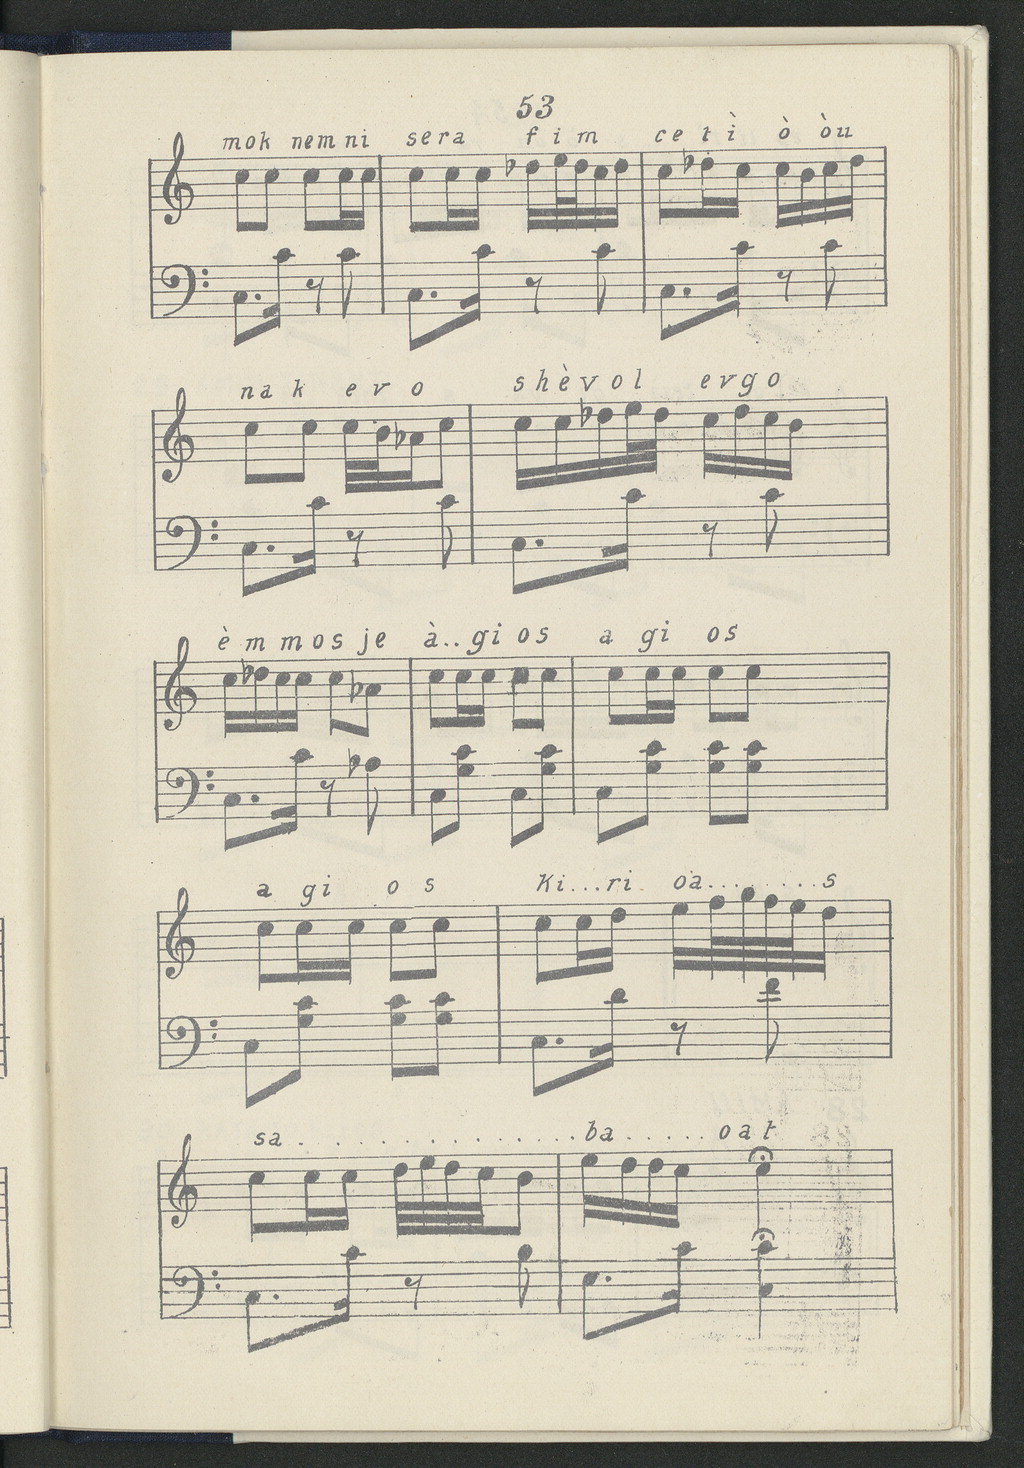 53
mok nem ni sera fim ceti ò òu
nak evo shèvol evgo
èmmosje à..gios agios
agios Ki...ri oa........s
sa................ba.....oat